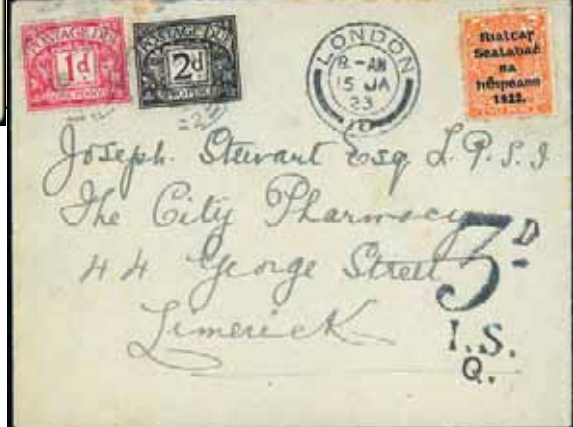 POSTAGE DUE
1d
ONE PENNY
POSTAGE DUE
2d
TWO PENCE
LONDON
8-AM
15 JA
23
Rialtar
Sealadaċ
na
hÉireann
1922.
TWO PENCE
Joseph. Stewart Esq L.P.S.I
The City Pharmacy
44 George Street
Limerick
3D
I.S.
Q.